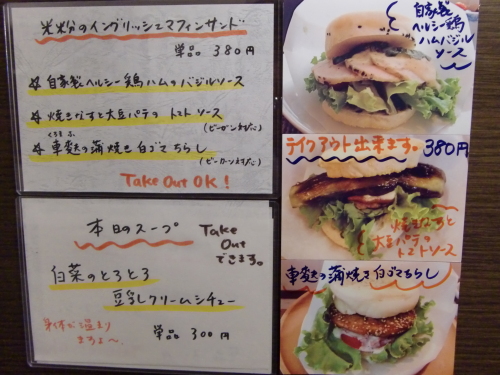 米粉のイングリッシュマフィンサンド
単品 380円
自家製ヘルシー鶏ハムのバジルソース
焼きなすと大豆パテのトマトソース
(ビーガン対応)
くるまふ
車麩の蒲焼き白ゴマちらし
(ビーガン対応)
Take Out OK!
本日のスープ
Take Out できます。
白菜のとろとろ
豆乳クリームシチュー
単品 300円
身体が温まりますよ〜
自家製
ヘルシー鶏
ハムバジル
ソース
テイクアウト出来ます。380円
焼きなすと
大豆パテの
トマトソース
車麩の蒲焼き白ゴマちらし